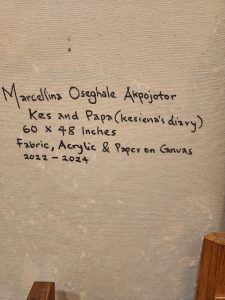 Marcellina Oseghale Akpojotor
Kes and Papa (kesiena's diary)
60 x 48 Inches
Fabric, Acrylic & Paper on Canvas
2022 - 2024